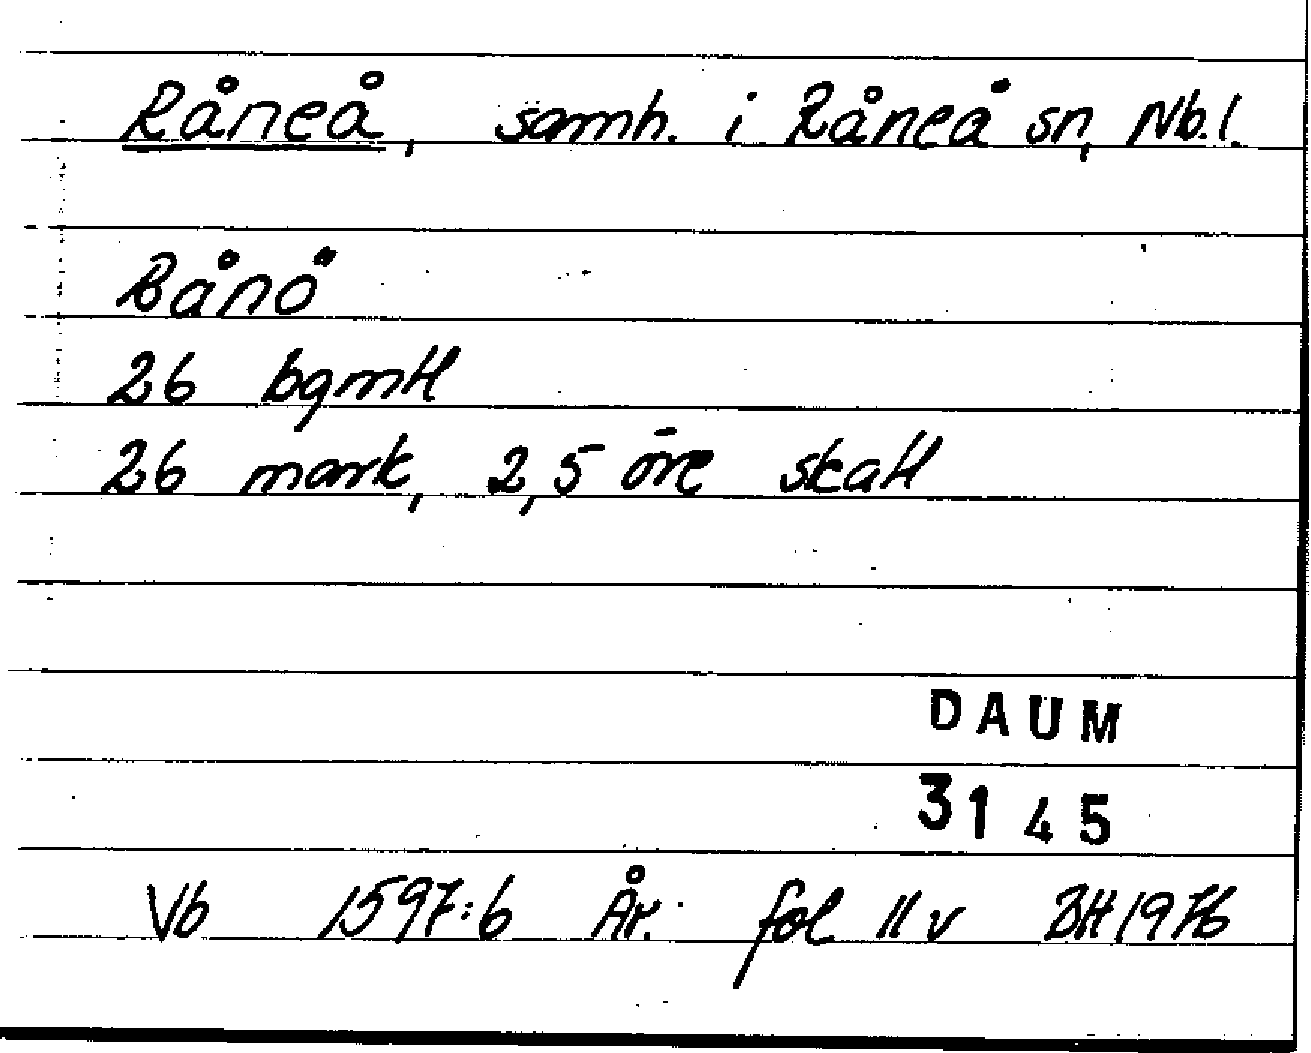 Råneå, samh. i Råneå sn, Nb.l.
Bånö
26 bgmtl
26 mark, 2,5 öre skatt
DAUM
3145
Vb 1597:6 År. fol 11 v BH 1976